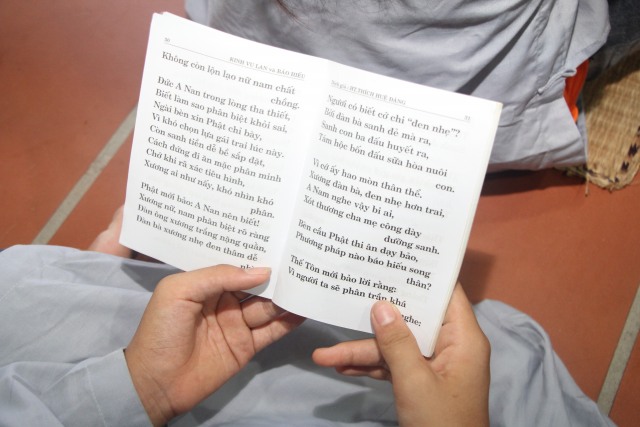 30
KINH VU LAN và BÁO HIẾU
Không còn lộn lạo nữ nam chất
chồng.
Đức A Nan trong lòng tha thiết,
Biết làm sao phân biệt khỏi sai,
Ngài bèn xin Phật chỉ bày,
Vì khó chọn lựa gái trai lúc này.
Còn sanh tiền dễ bề sắp đặt,
Cách đứng đi ăn mặc phân minh
Chớ khi rã xác tiêu hình,
Xương ai như nấy, khó nhìn khó
phân.
Phật mới bảo: A Nan nên biết!
Xương nữ, nam phân biệt rõ ràng
Đàn ông xương trắng nặng quằn,
Đàn bà xương nhẹ đen thâm dễ
HT THÍCH HUỆ ĐĂNG
31
Người có biết cớ chi “đen nhẹ”?
Bởi đàn bà sanh đẻ mà ra,
Sanh con ba đấu huyết ra,
Tám hộc bốn đấu sữa hòa nuôi
con.
Vì cớ ấy hao mòn thân thể.
Xương đàn bà, đen nhẹ hơn trai,
A Nam nghe vậy bi ai,
Xót thương cha mẹ công dày
dưỡng sanh.
Bèn cầu Phật thi ân dạy bảo,
Phương pháp nào báo hiếu song
thân?
Thế Tôn mới bảo lời rằng:
Vì ngươi ta sẽ phân trần khá
nghe: